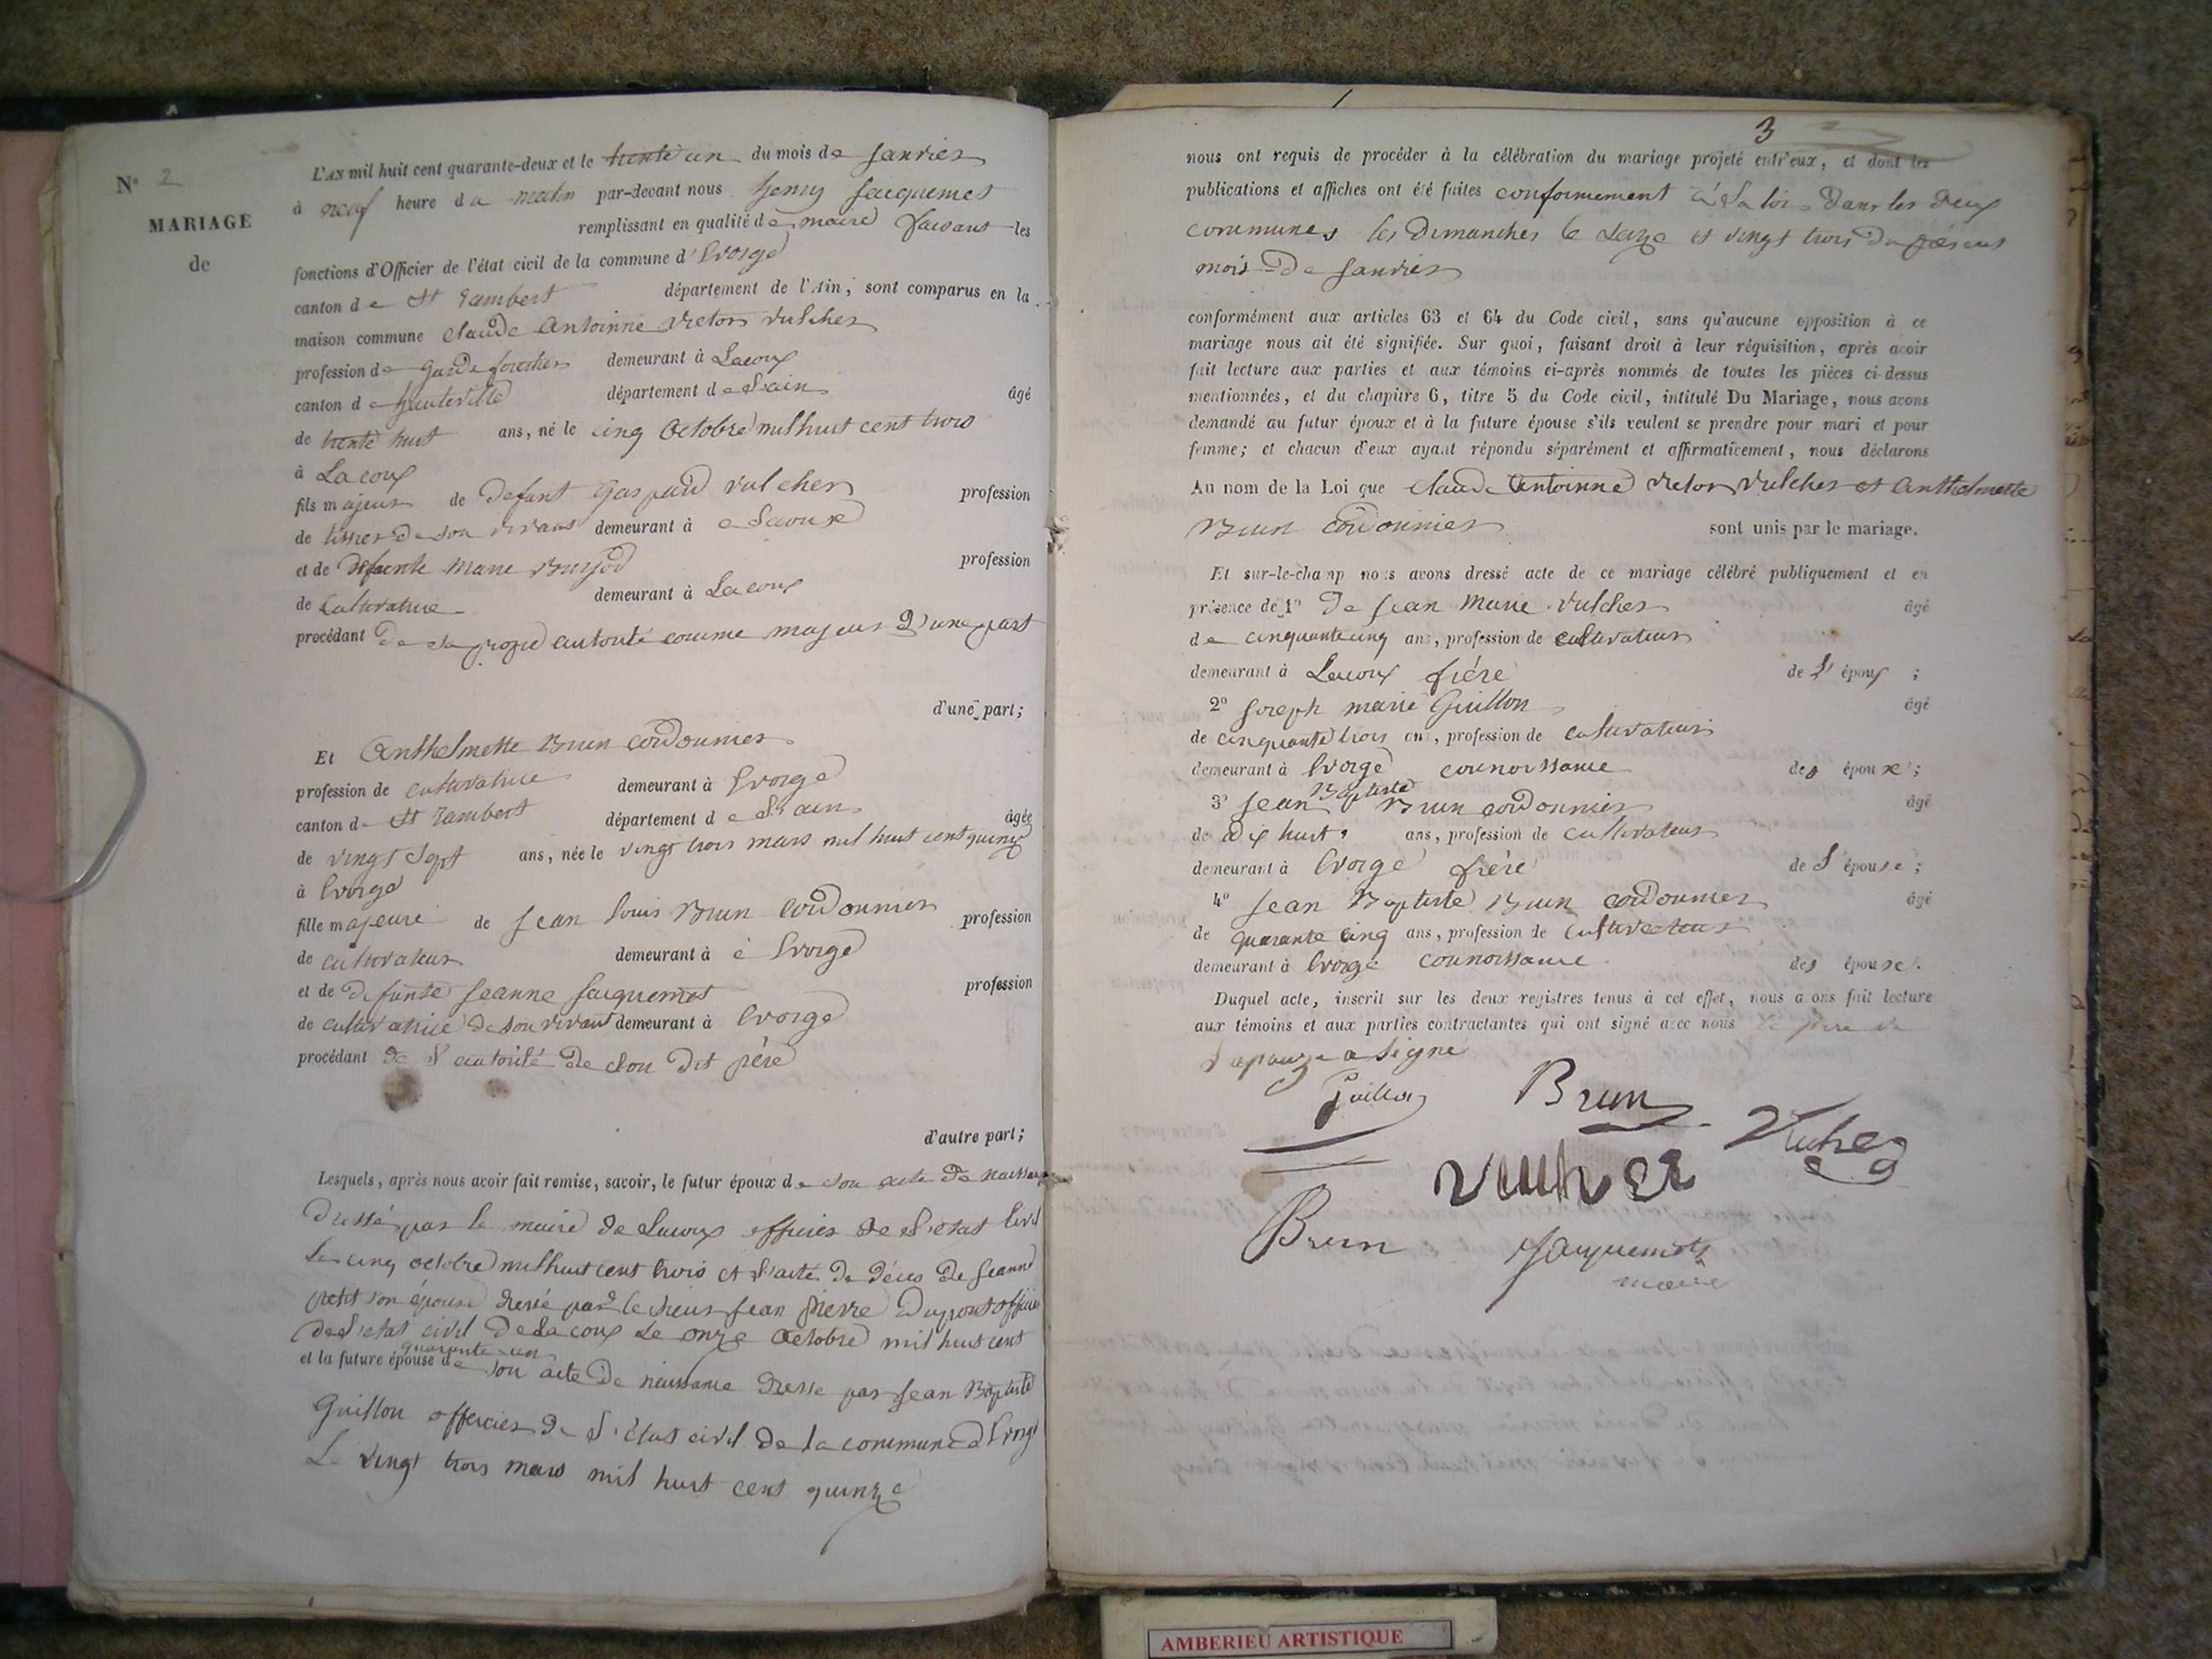 N° 2
MARIAGE
de
L'AN mil huit cent quarante-deux et le trente un du mois de janvier
à neuf heure du matin par-devant nous henry jacquemet
remplissant en qualité de maire faisant les
fonctions d'Officier de l'état civil de la commune d'Evosge
canton de St Rambert département de l'Ain, sont comparus en la
maison commune Claude Antoinne victor vulcher
profession de garde forestier demeurant à Lacoux
canton d hauteville département de L'ain âgé
de trente huit ans, né le cinq Octobre mil huit cent trois
à Lacoux
fils majeur de defunt Gaspard vulcher profession
de de son vivant demeurant à a Lacoux
et de defunte marie Burjod profession
de cultivatrice demeurant à Lacoux
procédant de sa propre autorité comme majeur D'une part
d'une part;
Et Anthelmette Brun cordonnier
profession de cultivatrice demeurant à Evosge
canton de St Rambert département de L'ain âgée
de vingt sept ans, née le vingt trois mars mil huit cent quinze
à Evosge
fille majeure de jean Louis Brun cordonnier profession
de cultivateur demeurant à à Evosge
et de defunte jeanne jacquemet profession
de cultivatrice de son vivant demeurant à Evosge
procédant de l'autorité de son dit père
d'autre part;
Lesquels, après nous avoir fait remise, savoir, le futur époux de son acte de naissance
dressé par le maire de Lacoux officier de L'etat civil
le cinq octobre mil huit cent trois et L'acte de décès de jeanne
petit son épouse dressé par le sieur jean pierre Dupont officier
de L'etat civil de Lacoux Le onze Octobre mil huit cent
quarante un
et la future épouse de son acte de naissance dressé par jean Baptiste
Guillon officier de L'état civil de la commune d'Evosge
Le vingt trois mars mil huit cent quinze
3
nous ont requis de procéder à la célébration du mariage projeté entr'eux, et dont les
publications et affiches ont été faites conformement à La loi dans les deux
communes les dimanches le seize et vingt trois du présent
mois de janvier
conformément aux articles 63 et 64 du Code civil, sans qu'aucune opposition à ce
mariage nous ait été signifiée. Sur quoi, faisant droit à leur réquisition, après avoir
fait lecture aux parties et aux témoins ci-après nommés de toutes les pièces ci-dessus
mentionnées, et du chapitre 6, titre 5 du Code civil, intitulé Du Mariage, nous avons
demandé au futur époux et à la future épouse s'ils veulent se prendre pour mari et pour
femme; et chacun d'eux ayant répondu séparément et affirmativement, nous déclarons
Au nom de la Loi que Claude Antoinne victor vulcher et Anthelmette
Brun cordonnier sont unis par le mariage.
Et sur-le-champ nous avons dressé acte de ce mariage célébré publiquement et en
présence de 1° de jean Marie vulcher âgé
de cinquante cinq ans, profession de cultivateur
demeurant à Lacoux frére de L'époux ;
2° joseph marie Guillon âgé
de cinquante trois ans, profession de cultivateur
demeurant à Evosge connoissance des épouxe ;
3° jean Baptiste Brun cordonnier âgé
de dix huit ans, profession de cultivateur
demeurant à Evosge frére de L'épouse ;
4° jean Baptiste Brun cordonnier âgé
de quarante cinq ans, profession de cultivateur
demeurant à Evosge connoissance des épouxe.
Duquel acte, inscrit sur les deux registres tenus à cet effet, nous avons fait lecture
aux témoins et aux parties contractantes qui ont signé avec nous le père de
L'epouze a signé
Guillon Brun
vulcher Vulcher
Brun jacquemet
maire
AMBERIEU ARTISTIQUE